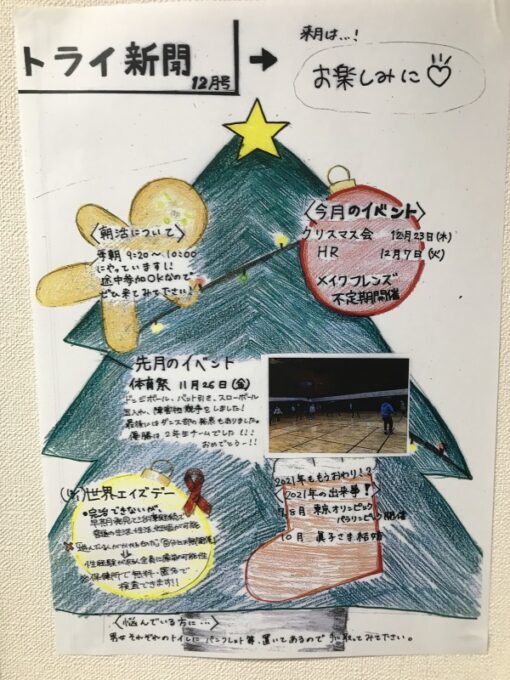 トライ新聞
12月号
→
来月は…!
お楽しみに♡
〈朝活について〉
毎朝 9:20〜10:00
にやっています!!
途中参加OKなので
ぜひ来てみて下さい!
〈今月のイベント〉
クリスマス会 12月23日(木)
HR 12月7日(火)
メイクフレンズ
不定期開催
先月のイベント
体育祭 11月26日(金)
ドッジボール、バット引き、スローボール
玉入れ、障害物競争をしました!
最後にはダンス部の発表もありました。
優勝は2年生チームでした!!!
おめでとうー!!
世界エイズデー
・完治できないが、
早期発見で治療継続で
普通の生活、性活、妊娠が可能
性経験があれば全員に感染の可能性
※保健所で無料・匿名で
検査できます!!
2021年ももうおわり!?
〈2021年の出来事!〉
7.8月 東京オリンピック
パラリンピック開催
10月 眞子さま結婚
〈悩んでいる方に…〉
男女それぞれのトイレにパンフレット等、置いてあるので手に取ってみて下さい。